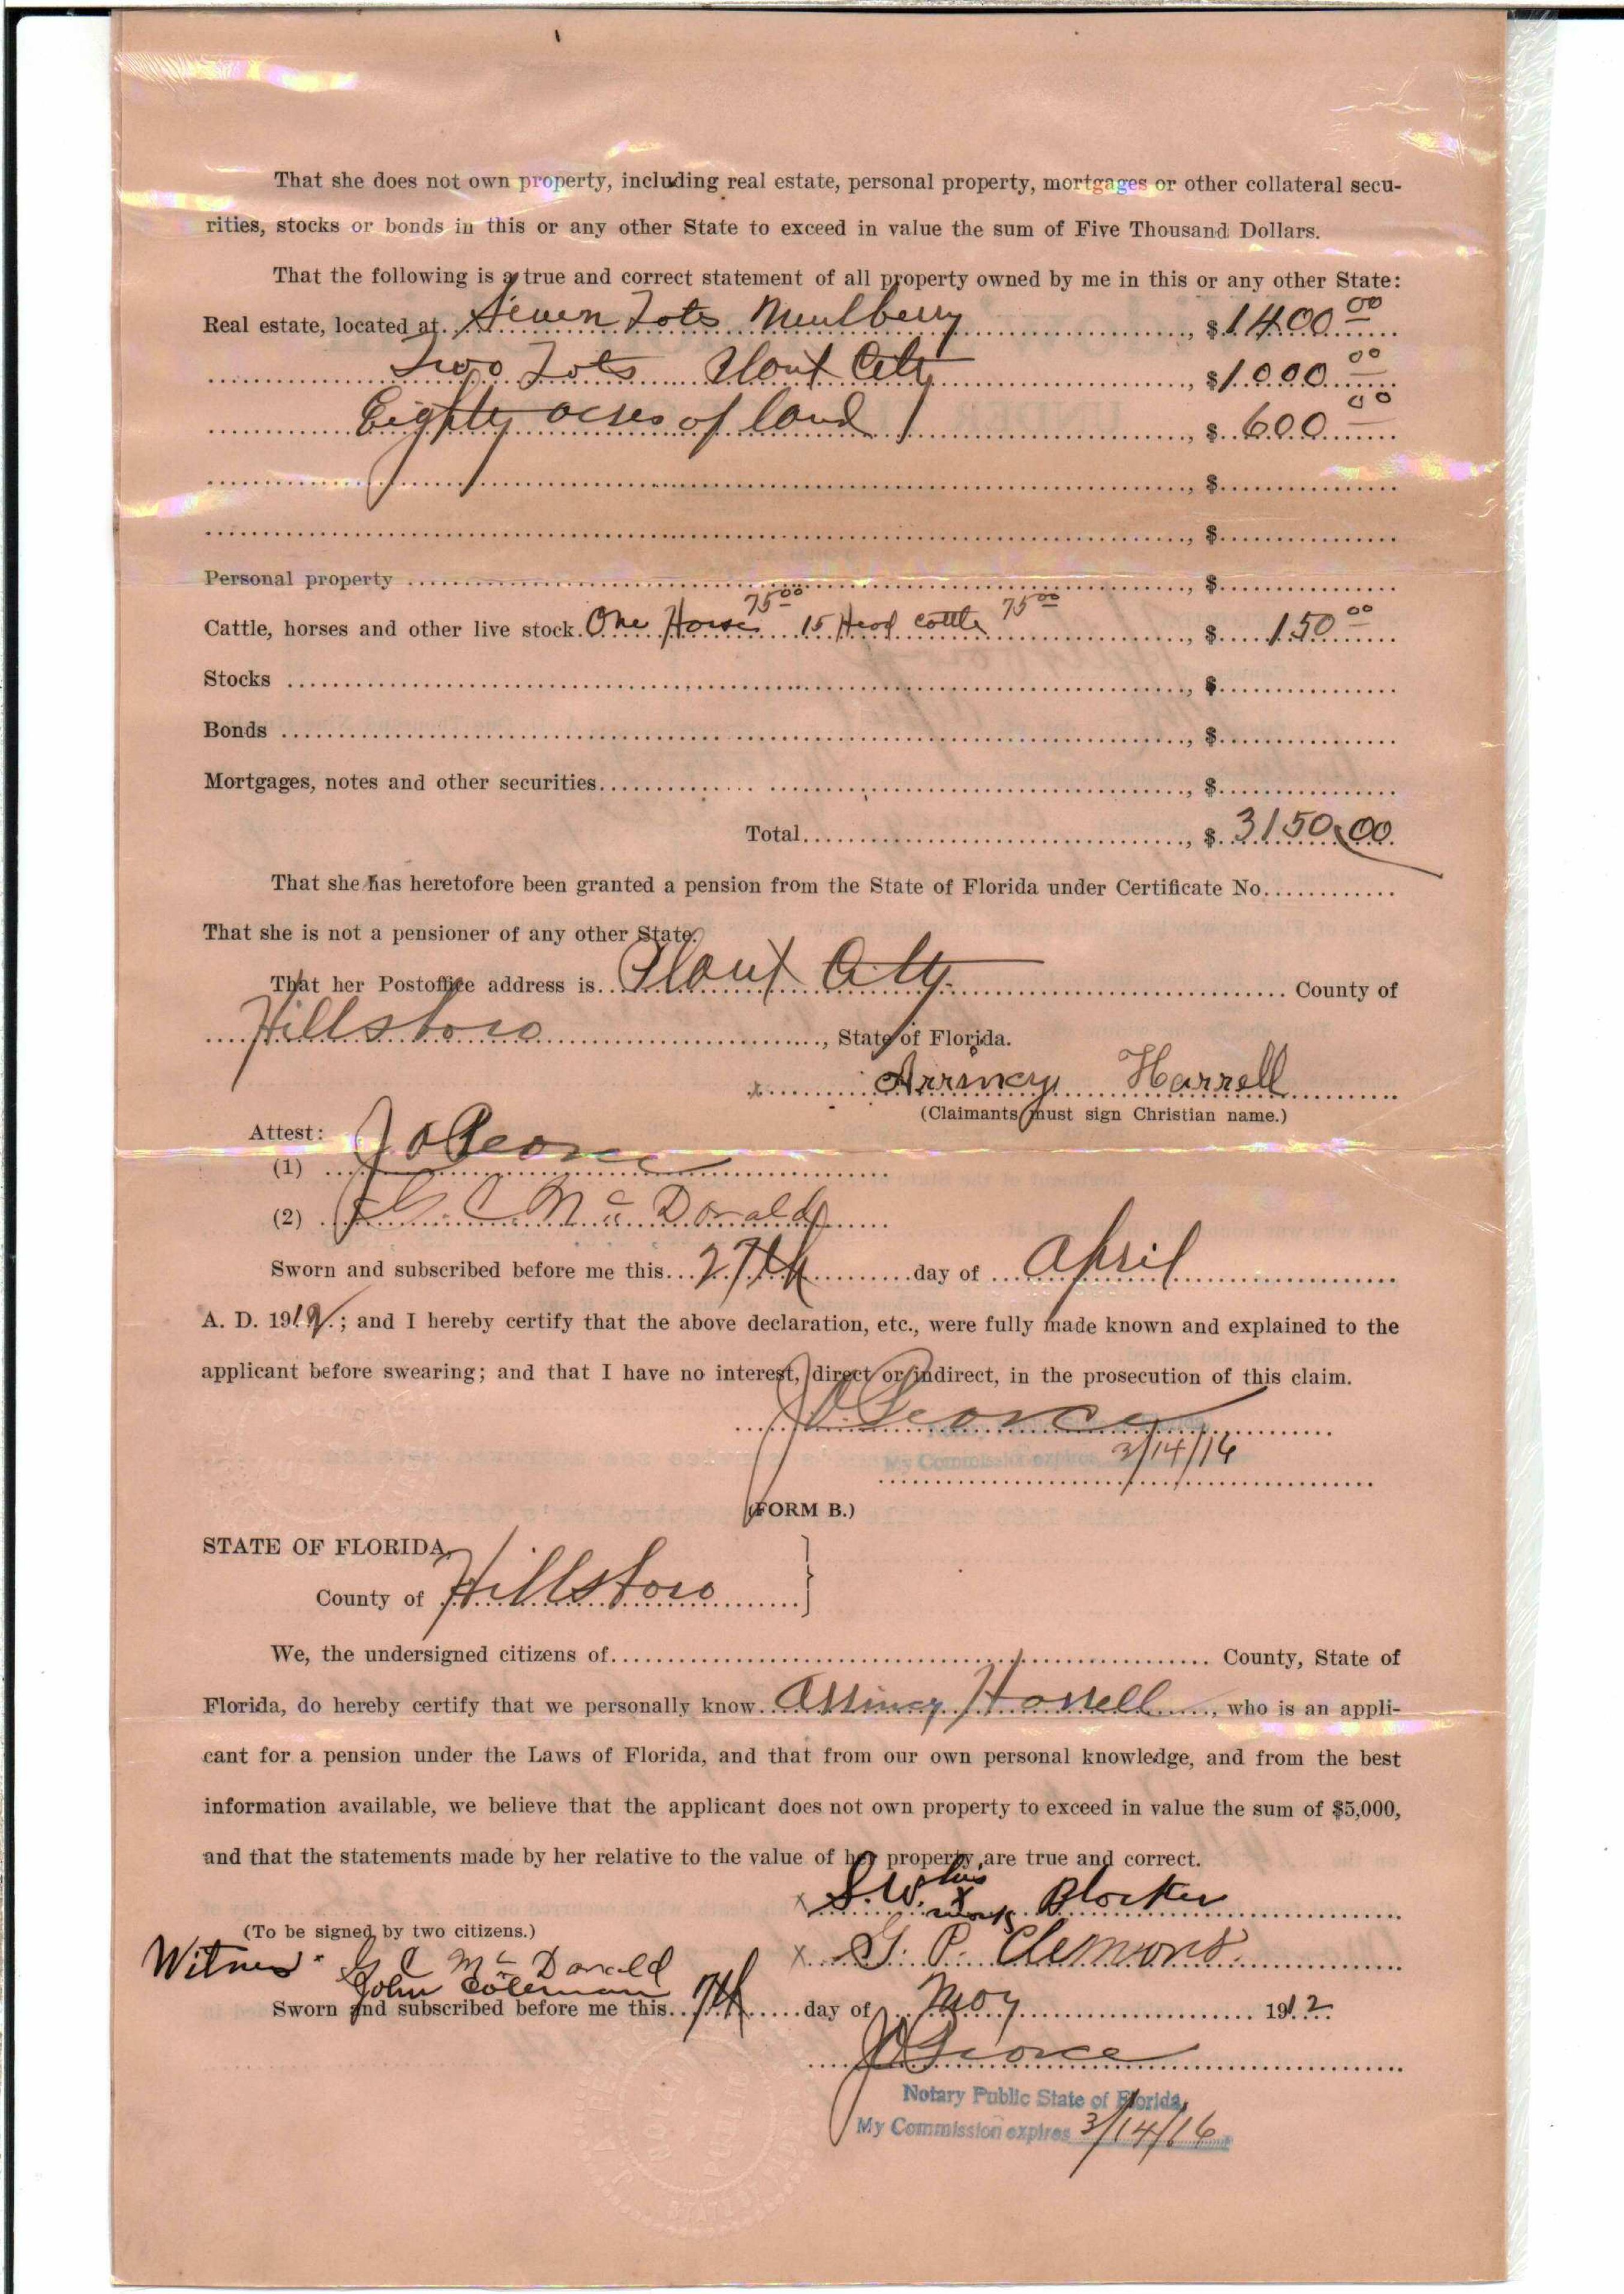 That she does not own property, including real estate, personal property, mortgages or other collateral secu-
rities, stocks or bonds in this or any other State to exceed in value the sum of Five Thousand Dollars.
That the following is a true and correct statement of all property owned by me in this or any other State:
Real estate, located at Seven Lots Mulberry, $1400.00
Two Lots Plant City, $1000.00
Eighty acres of land, $600.00
, $
, $
Personal property, $
Cattle, horses and other live stock. One Horse 75.00 15 Head cattle 75.00, $150.00
Stocks, $
Bonds, $
Mortgages, notes and other securities, $
Total, $3150.00
That she has heretofore been granted a pension from the State of Florida under Certificate No.
That she is not a pensioner of any other State.
That her Postoffice address is Plant City County of
Hillsboro, State of Florida.
x Arrincy Harrell
(Claimants must sign Christian name.)
Attest:
(1)
(2) G. C. McDonald
Sworn and subscribed before me this 27th day of April
A. D. 1912; and I hereby certify that the above declaration, etc., were fully made known and explained to the
applicant before swearing; and that I have no interest, direct or indirect, in the prosecution of this claim.
My Commission expires 3/14/16
(FORM B.)
STATE OF FLORIDA,
County of Hillsboro }
We, the undersigned citizens of County, State of
Florida, do hereby certify that we personally know Arrincy Harrell, who is an appli-
cant for a pension under the Laws of Florida, and that from our own personal knowledge, and from the best
information available, we believe that the applicant does not own property to exceed in value the sum of $5,000,
and that the statements made by her relative to the value of her property are true and correct.
x S. W. his x mark Blocker
(To be signed by two citizens.)
Witness G C McDonald x G. P. Clemons.
John Coleman
Sworn and subscribed before me this 7th day of May 1912
Notary Public State of Florida,
My Commission expires 3/14/16